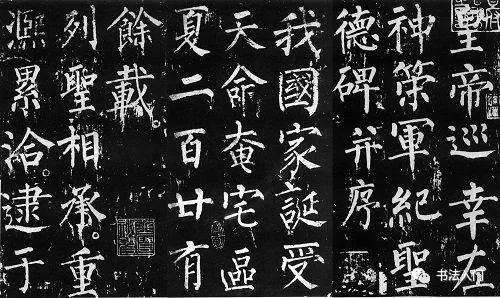 皇帝巡幸左
神策軍紀聖
德碑并序
我國家誕受
天命奄宅區
夏二百廿有
餘載
列聖相承重
熙累洽逮于